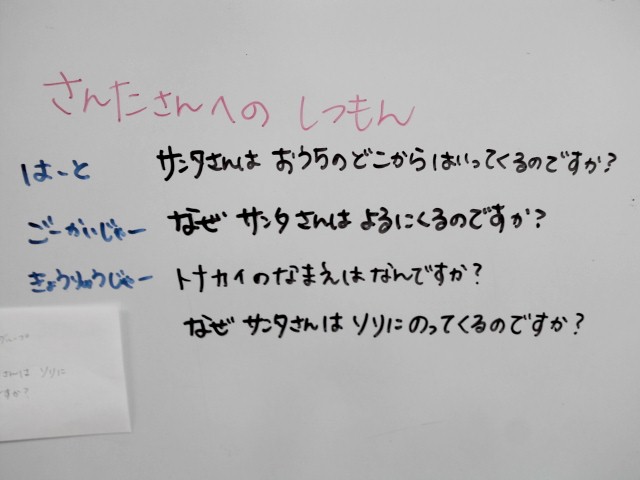 さんたさんへの しつもん
はーと サンタさんは おうちのどこから はいってくるのですか?
ごーかいじゃー なぜ サンタさんは よるにくるのですか?
きょうりゅうじゃー トナカイのなまえはなんですか?
なぜ サンタさんは ソリにのってくるのですか?
さんは ソリに
すか?